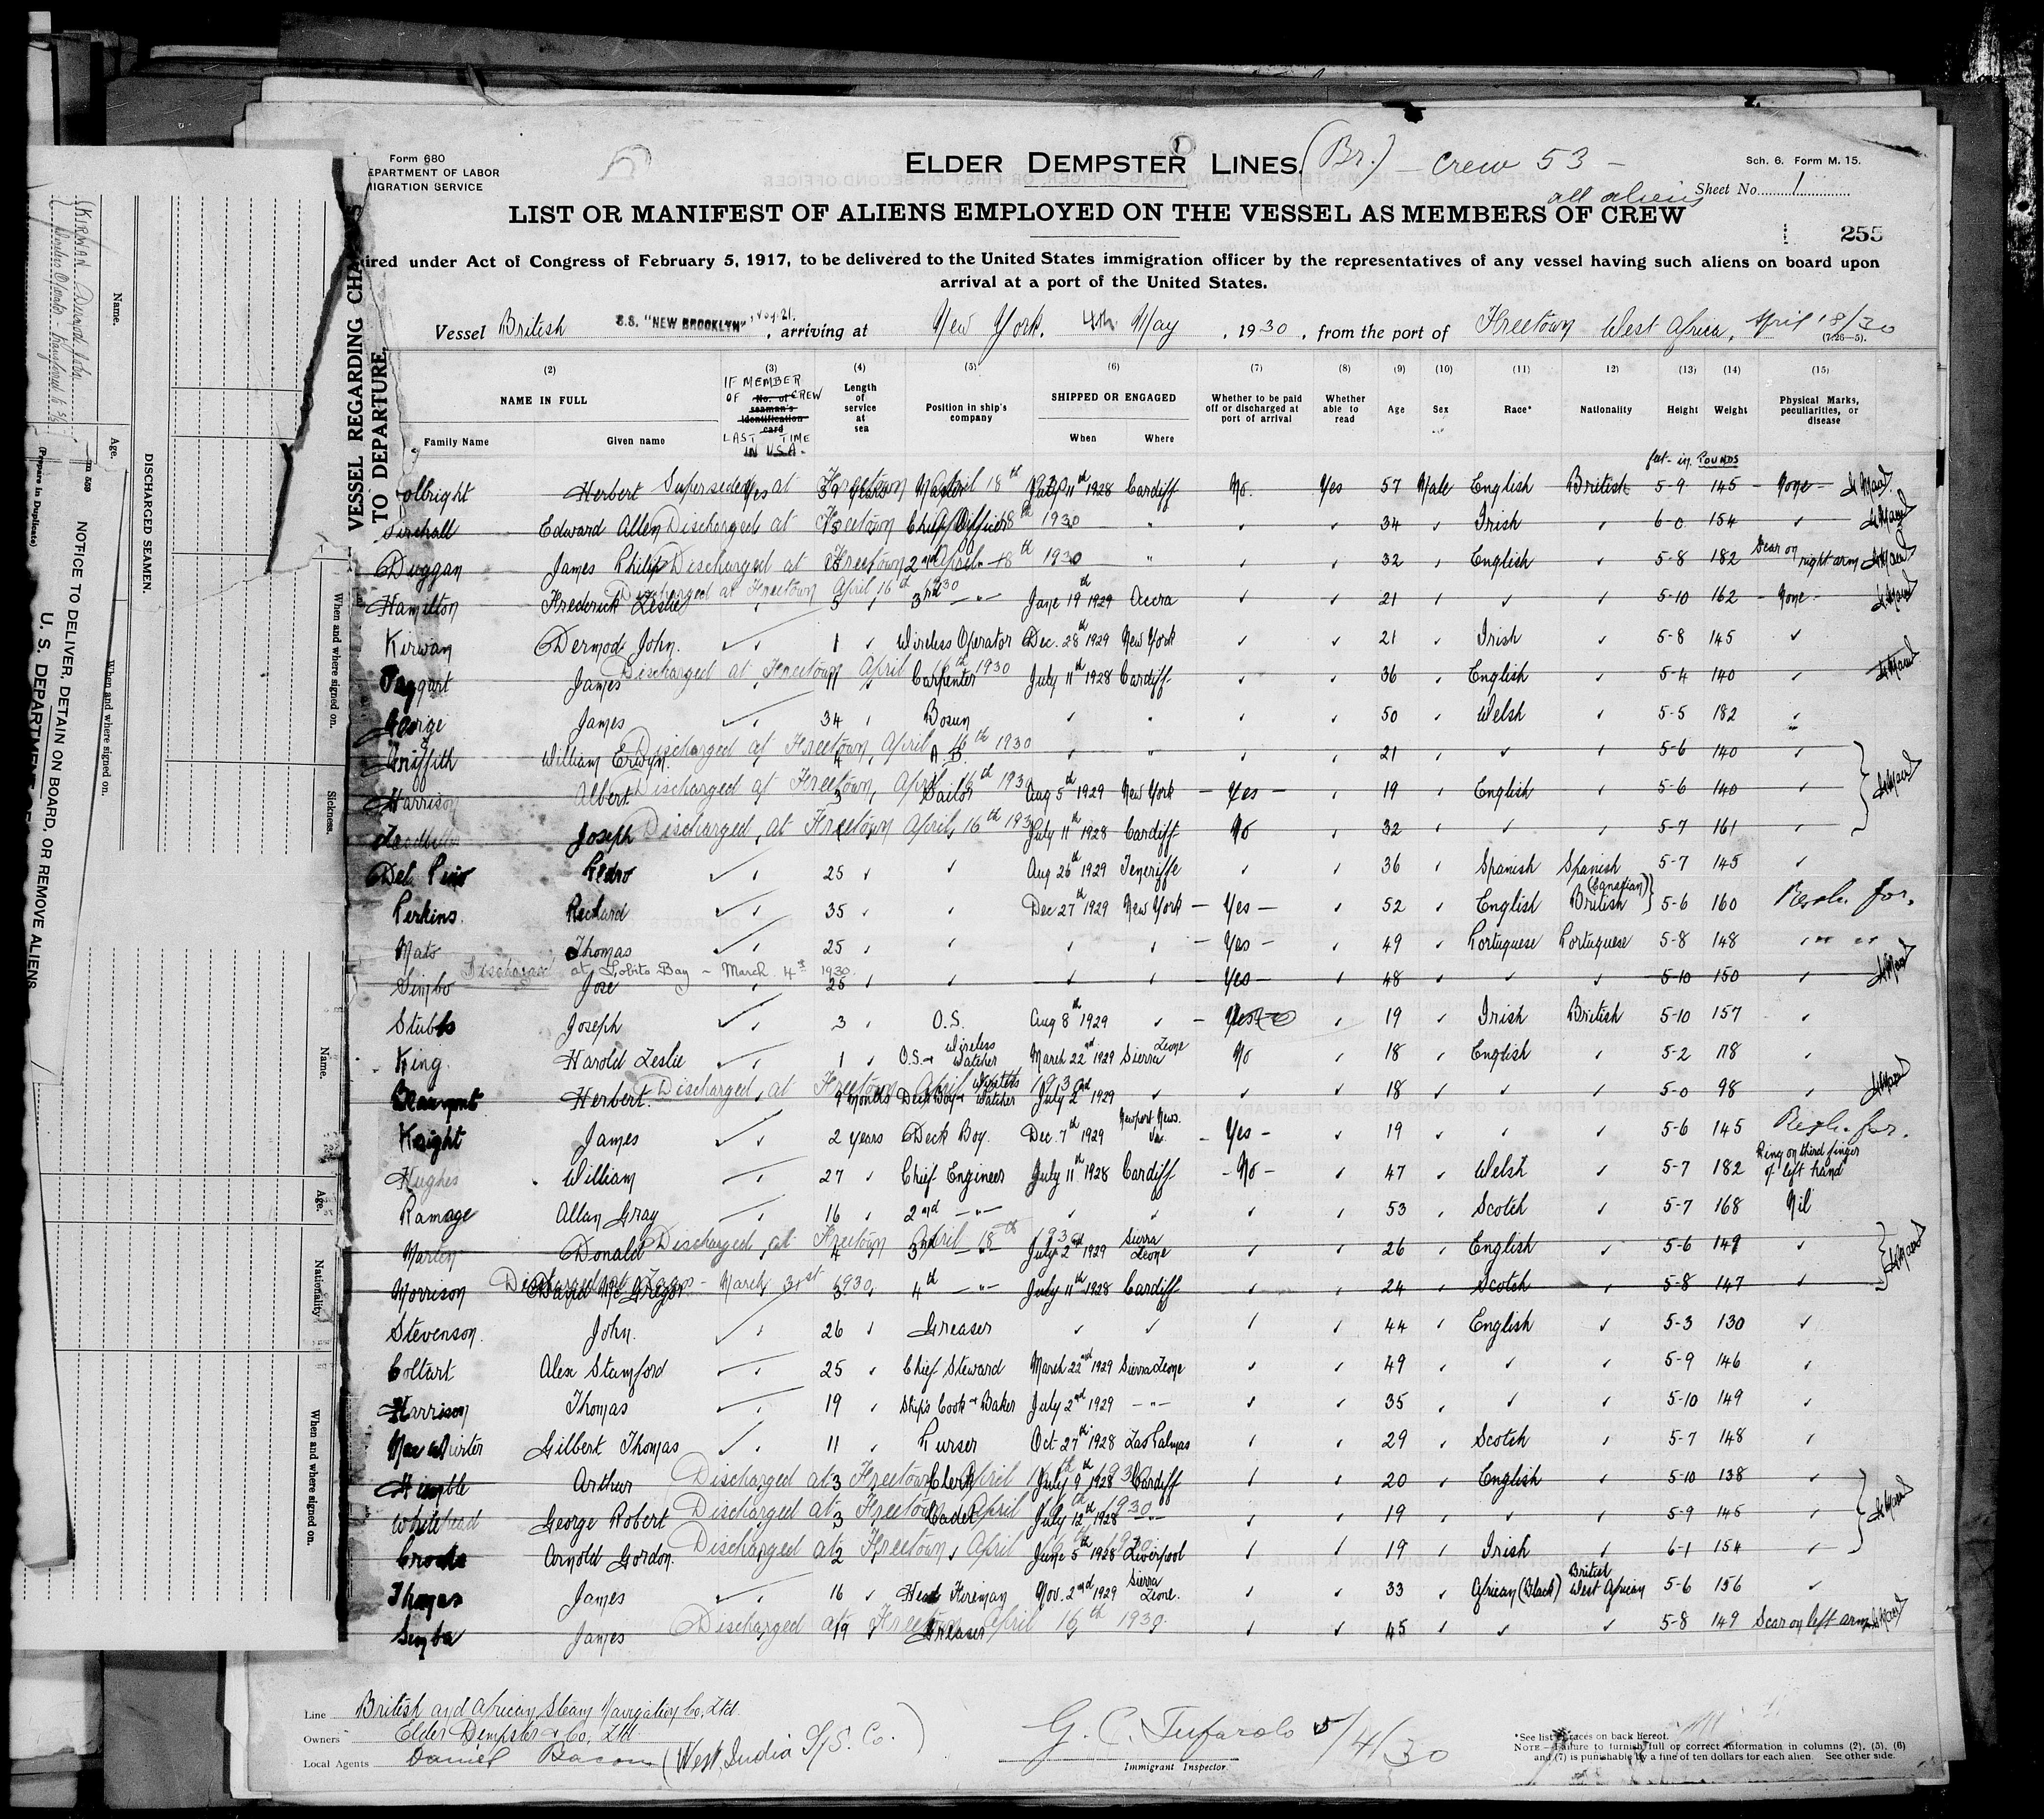 Form 680
EPARTMENT OF LABOR
MIGRATION SERVICE
ELDER DEMPSTER LINES. (Br.) – Crew 53 –
all aliens
Sch. 6. Form M. 15.
Sheet No. 1
LIST OR MANIFEST OF ALIENS EMPLOYED ON THE VESSEL AS MEMBERS OF CREW
255
ired under Act of Congress of February 5, 1917, to be delivered to the United States immigration officer by the representatives of any vessel having such aliens on board upon
arrival at a port of the United States.
Vessel British S.S. "NEW BROOKLYN", Voy. 21. , arriving at New York. 4th May , 1930 , from the port of Freetown West Africa, April 18/30
(7.26—5).
(2) (3) (4) (5) (6) (7) (8) (9) (10) (11) 12) (13) (14) (15)
NAME IN FULL
Family Name Given name
IF MEMBER OF No. of CREW seaman's identification card LAST TIME IN USA.
Length of service at sea
Position in ship's company
SHIPPED OR ENGAGED
When Where
Whether to be paid off or discharged at port of arrival
Whether able to read
Age Sex Race* Nationality Height Weight
Physical Marks, peculiarities, or disease
feet - in. POUNDS
olbright Herbert Superseded at Freetown April 18th Yes 39 Years Master July 11th 1928 Cardiff No. Yes 57 Male English British 5-9 145 – None –
Edward Allen Discharged at Freetown April 18th 1930 Chief Officer " 34 Irish 6-0 154
Duggan James Philip Discharged at Freetown April 18th 1930 2nd " 32 English 5-8 182 Scar on right arm
Hamilton Frederick Leslie Discharged at Freetown April 16th 1930 5 3rd –"– June 19th 1929 Accra 21 5-10 162 – None –
Kirwan Dermod John. 1 Wireless Operator Dec. 28th 1929 New York 21 Irish 5-8 145
Taggart James Discharged at Freetown April 16th 1930 11 Carpenter July 11th 1928 Cardiff 36 English 5-4 140
George James 34 Bosun " 50 Welsh 5-5 182
Griffith William Erwyn. Discharged at Freetown April 16th 1930 4 A.B. " 21 5-6 140
Harrison Albert Discharged at Freetown, April 16th 1930 3 Sailor Aug 5th 1929 New York – Yes – 19 English 5-6 140
Joseph Discharged, at Freetown April, 16th 193 July 11th 1928 Cardiff No 32 5-7 161
Del Pino Pedro 25 Aug 26th 1929 Teneriffe 36 Spanish Spanish 5-7 145
Perkins. Richard 35 Dec 27th 1929 New York – Yes – 52 English (Canadian) British 5-6 160 Resh. for.
Mato Thomas 25 – Yes – 49 Portuguese Portuguese 5-8 148 " "
Simbo Jose Discharged at Lobito Bay – March 4th 1930. 25 Yes – 48 5-10 150
Stubbs Joseph 3 O.S. Aug 8th 1929 – Yes No 19 Irish British 5-10 157
King. Harold Leslie 1 O.S. + Wireless Watcher March 22nd 1929 Sierra Leone No 18 English 5-2 118
Beaumont Herbert. Discharged, at Freetown April 1930 9 months Deck Boy + Wireless Watcher July 2nd 1929 18 5-0 98
Knight James 2 years Deck Boy. Dec. 7th 1929 Newport News. Va. – Yes – 19 5-6 145 Resh. for.
Hughes William 27 Chief Engineer July 11th 1928 Cardiff – No – 47 Welsh 5-7 182 Ring on third finger of left hand
Ramage Allan Gray 16 2nd –"– 53 Scotch 5-7 168 Nil
Marten Donald Discharged at Freetown April 18th 1930 4 3rd –"– July 2nd 1929 Sierra Leone 26 English 5-6 149
Morrison David McGregor Discharged at Lagos – March 31st 1930 4th –"– July 11th 1928 Cardiff 24 Scotch 5-8 147
Stevenson. John. 26 Greaser 44 English 5-3 130
Coltart Alex Stamford 25 Chief Steward March 22nd 1929 Sierra Leone 49 5-9 146
Harrison Thomas 19 Ship's Cook + Baker July 2nd 1929 –"– 35 5-10 149
MacWhirter Gilbert Thomas 11 Purser Oct 27th 1928 Las Palmas 29 Scotch 5-7 148
Himble Arthur Discharged at Freetown April 1930 3 Clerk July 9th 1928 Cardiff 20 English 5-10 138
Whitehead George Robert Discharged at Freetown April 1930 3 Cadet July 12th 1928 –"– 19 5-9 145
Arnold Gordon. Discharged at Freetown, April 2 June 5th 1928 Liverpool 19 Irish 6-1 154
Thomas James 16 Head Fireman Nov. 2nd 1929 Sierra Leone. 33 African (Black) British West African 5-6 156
Simba James Discharged at Freetown April 16th 1930. 19 Greaser 45 5-8 149 Scar on left arm
Line British and African Steam Navigation Co, Ltd
Owners Elder Dempster & Co, Ltd
Local Agents Daniel Bacon (West India S/S. Co.)
G. C. Tufarolo 5/4/30
Immigrant Inspector.
*See list of races on back hereof.
NOTE—Failure to furnish full or correct information in columns (2), (5), (6)
and (7) is punishable by a fine of ten dollars for each alien. See other side.
VESSEL REGARDING CHA
TO DEPARTURE.
(KIRWAN Dermod John
Wireless Operator - Transferred to S/S
Name. Age. When and where signed on.
DISCHARGED SEAMEN.
When and where signed on. Sickness. Name. Age. Nationality When and where signed on.
m 559
(Prepare in Duplicate)
NOTICE TO DELIVER, DETAIN ON BOARD, OR REMOVE ALIENS
U. S. DEPARTMENT